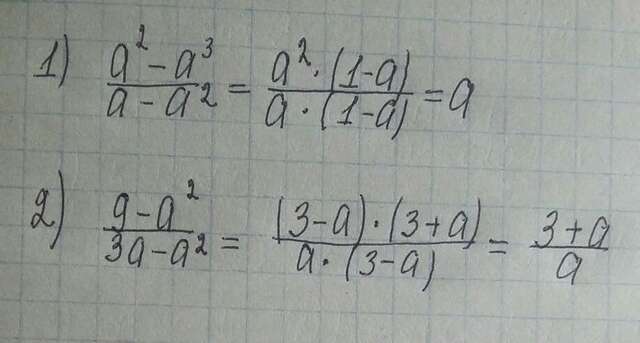 1) (a² - a³)/(a - a²) = (a² · (1-a))/(a · (1-a)) = a
2) (9 - a²)/(3a - a²) = ((3-a) · (3+a))/(a · (3-a)) = (3+a)/a